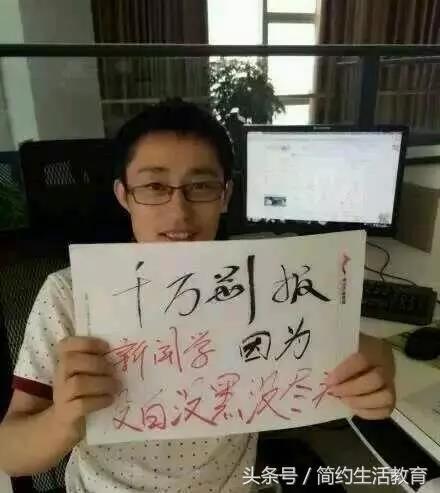 千万别报
新闻学 因为
没白没黑没尽头
头条号／简约生活教育